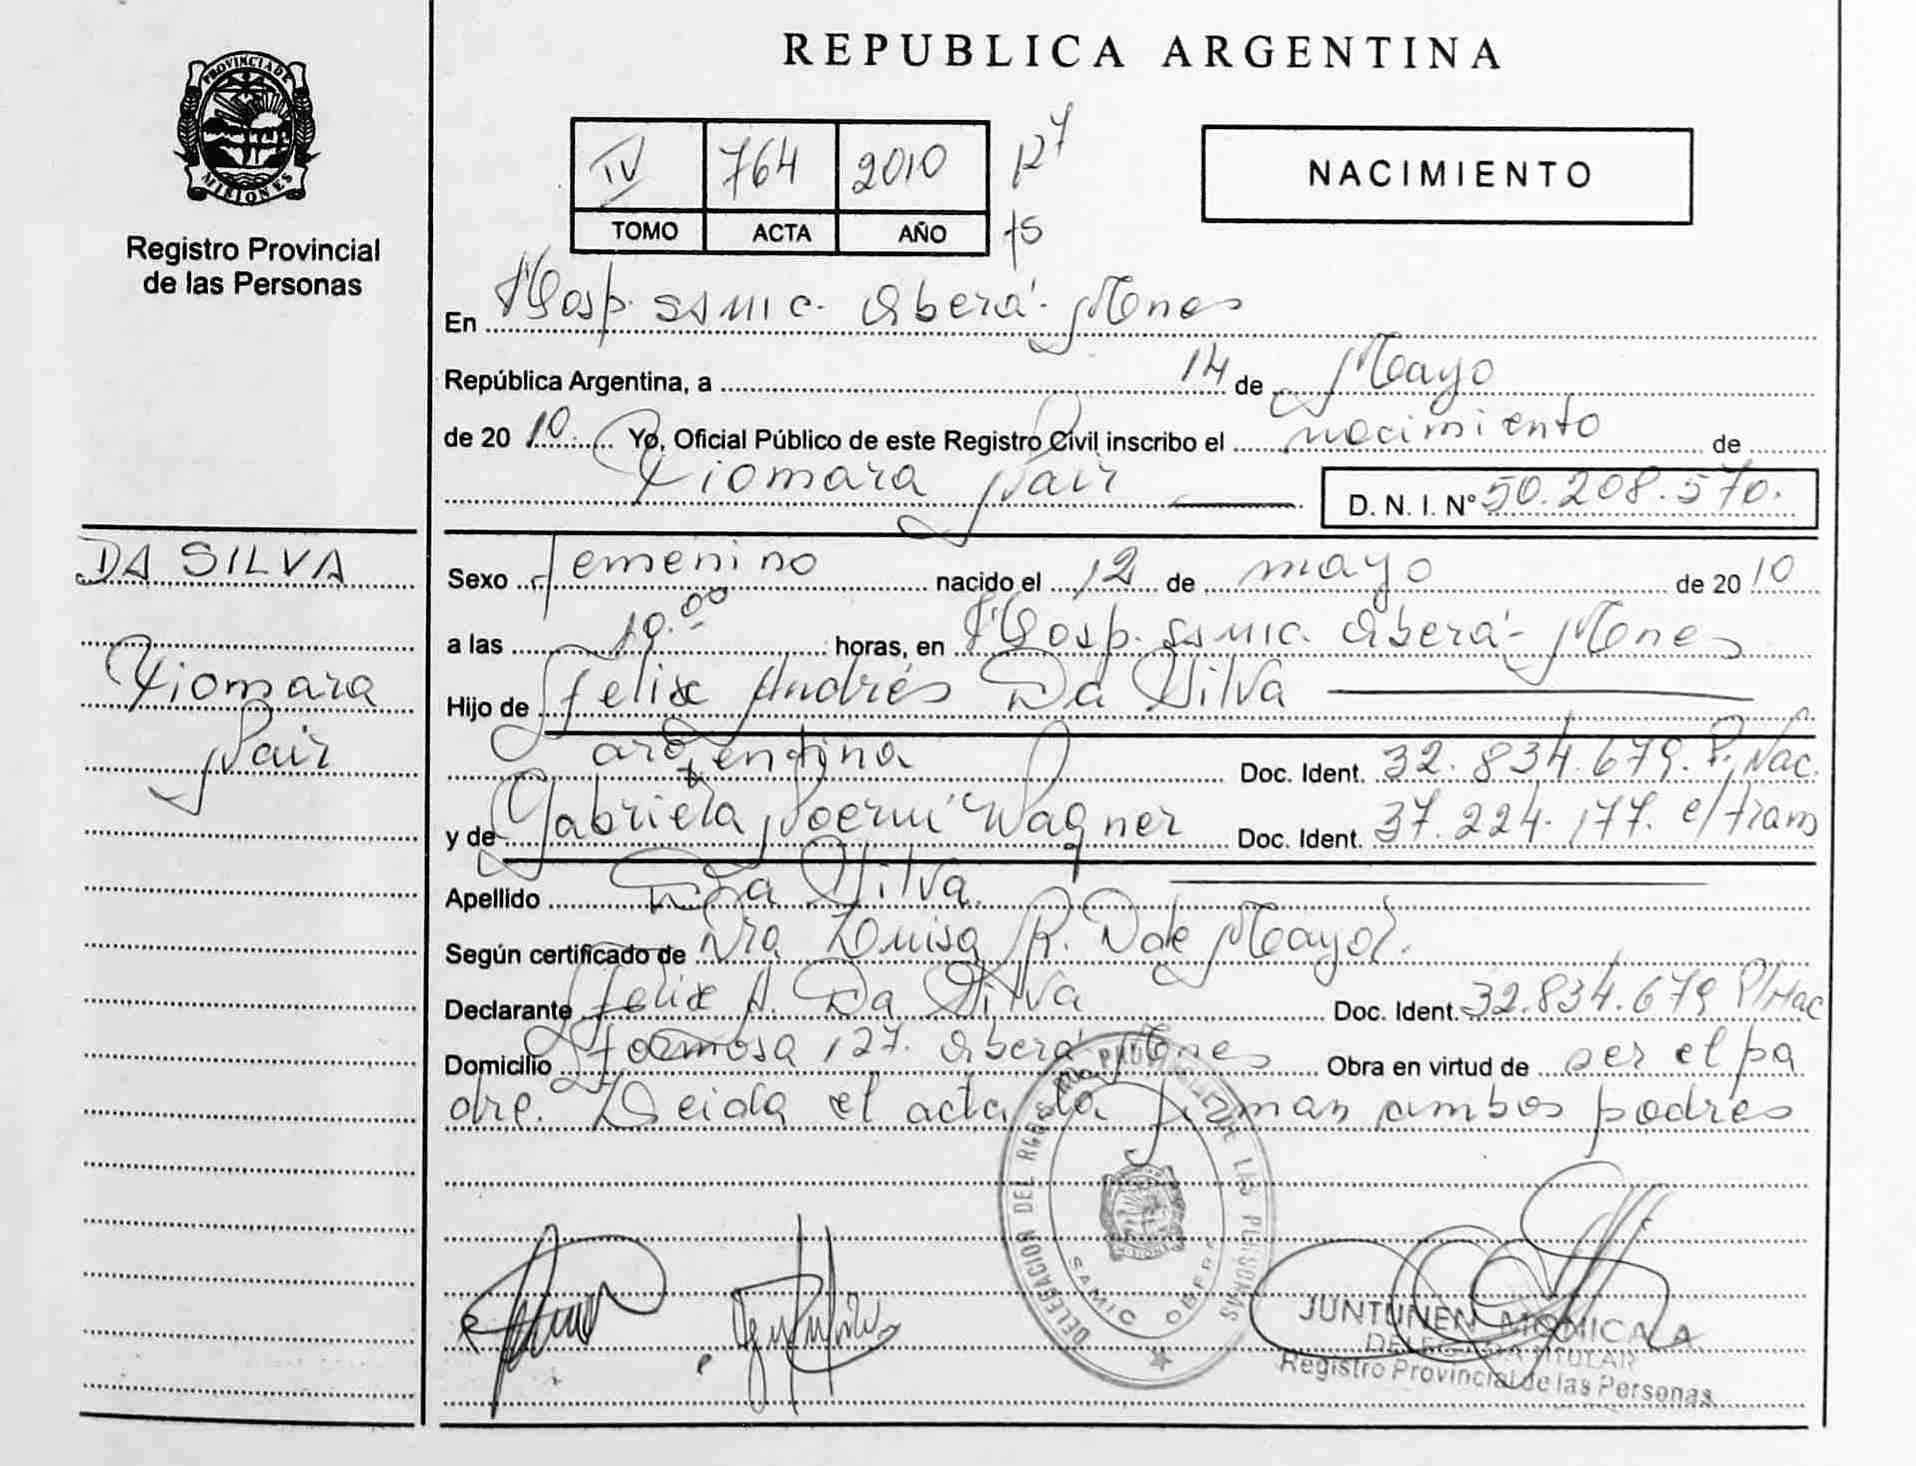 PROVINCIA DE
MISIONES
Registro Provincial
de las Personas
DA SILVA
Xiomara
Nair
REPUBLICA ARGENTINA
IV 764 2010
TOMO ACTA AÑO
NACIMIENTO
En Hosp. SAMIC. Oberá - Mnes
República Argentina, a 14 de Mayo
de 2010. Yo, Oficial Público de este Registro Civil inscribo el nacimiento de
Xiomara Nair D. N. I. Nº 50.208.570.
Sexo femenino nacido el 12 de mayo de 2010
a las 19.00 horas, en Hosp. SAMIC. Oberá - Mnes
Hijo de Felix Andrés Da Silva
argentina Doc. Ident. 32.834.679. P/Nac.
y de Gabriela Noemí Wagner Doc. Ident. 37.224.177. e/tram
Apellido Da Silva
Según certificado de Dra Luisa R. D de Mayol.
Declarante Felix A. Da Silva Doc. Ident. 32.834.679 P/Nac
Domicilio Formosa 127. Oberá Mnes Obra en virtud de ser el pa
dre. Leida el acta la firman ambos padres
DELEGACION DEL RG PROVINCIAL DE LAS PERSONAS
SAMIC OBERA
JUNTUNEN MONICA A.
DELEGADA TITULAR
Registro Provincial de las Personas